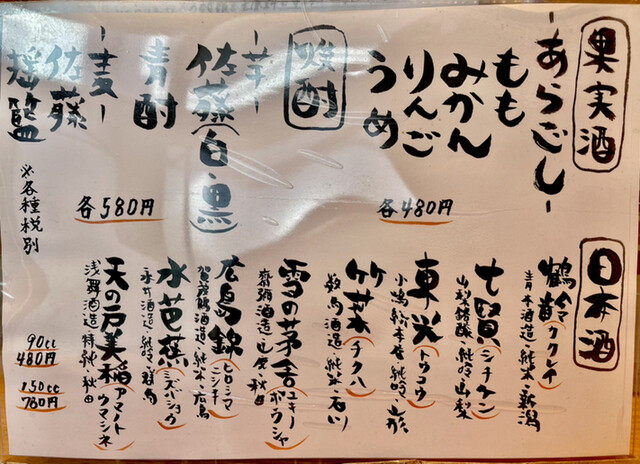 果実酒
-あらごし-
もも
みかん
りんご
うめ
各480円
焼酎
-芋-
佐藤(白・黒)
青酎
-麦-
佐藤
揺籃
各580円
※各種税別
日本酒
鶴齢 カクレイ
青木酒造/純米・新潟
七賢 シチケン
山梨銘醸/純吟・山梨
東光 トウコウ
竹葉 チクハ
数馬酒造/純米・石川
雪の茅舎 ユキノボウシャ
齋彌酒造/山廃・秋田
広島錦 ヒロシマニシキ
賀茂鶴酒造/純米・広島
水芭蕉 ミズバショウ
永井酒造/純吟・群馬
天の戸美稲 アマノトウマシネ
浅舞酒造/特純・秋田
90cc
480円
150cc
780円